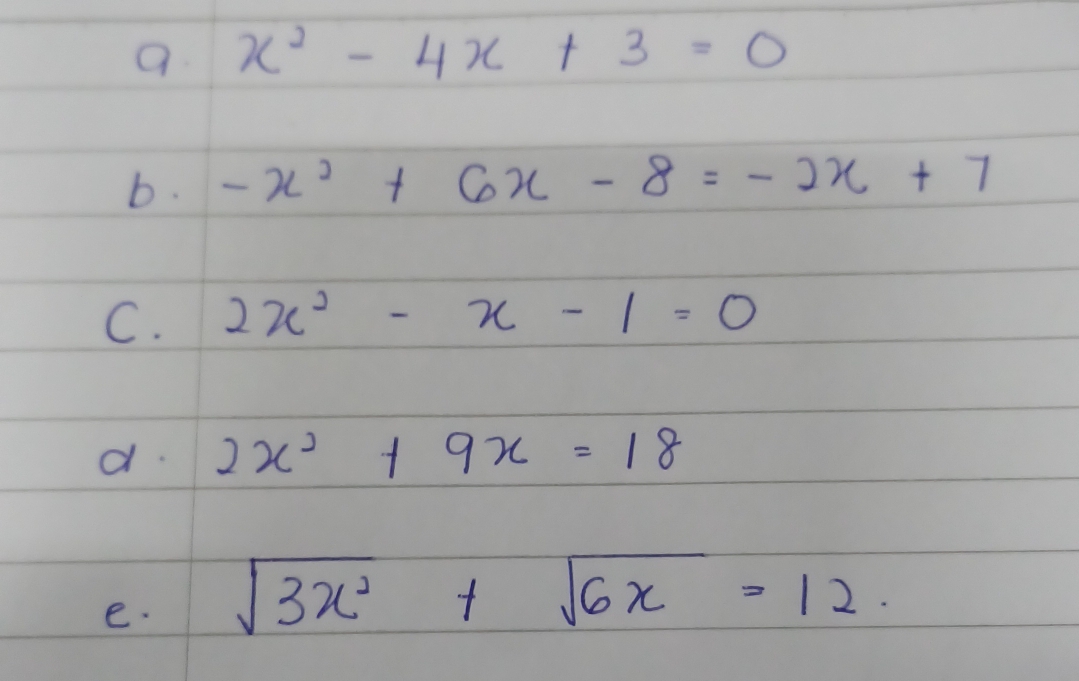 a. x² - 4x + 3 = 0
b. -x² + 6x - 8 = -2x + 7
c. 2x² - x - 1 = 0
d. 2x² + 9x = 18
e. √3x² + √6x = 12.